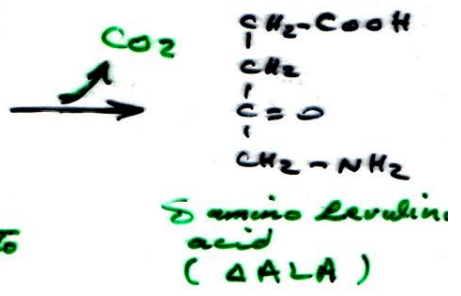 CO2
CH2-COOH
CH2
C=O
CH2-NH2
δ amino Levulin
acid
(ΔALA)